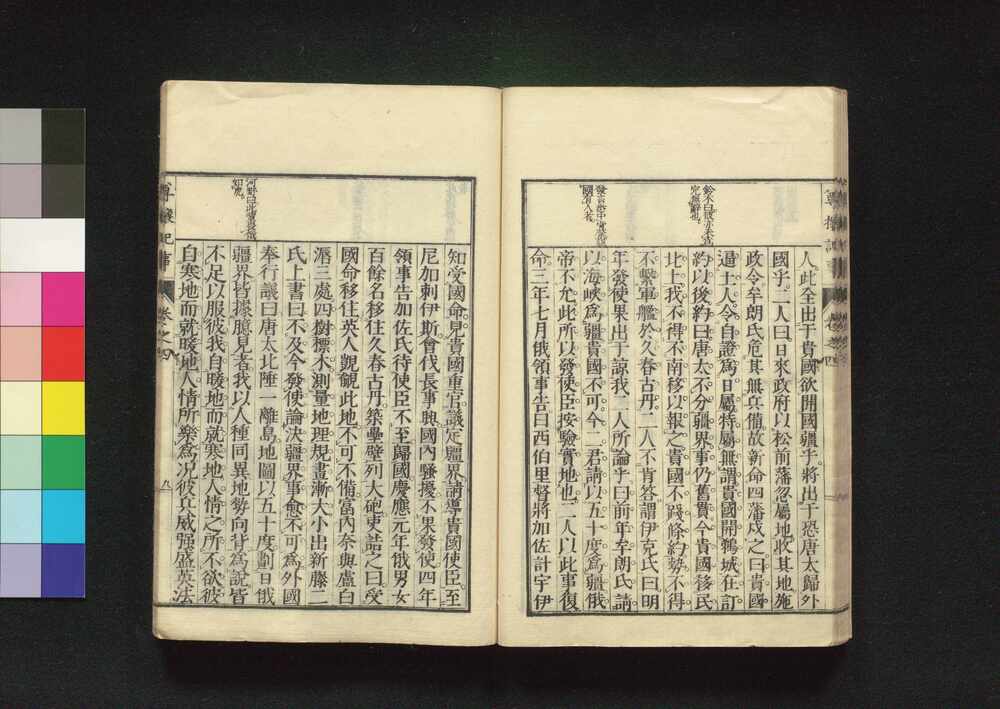 人此全出于貴國欲開國疆乎將出于恐唐太歸外
國乎二人曰日來政府以松前藩忽屬地收其地施
政令牟朗氏危其無兵備故新命四藩戍之曰貴國
逼土人令自證爲日屬特屬無謂貴國開鵜城在訂
約以後約曰唐太不分疆界事仍舊貫今貴國移民
北上我不得不南移以報之貴國不踐條約勢不得
不繫軍艦於久春古丹二人不肯答謂伊克氏曰明
年發使果出于諒我二人所論乎曰前年牟朗氏請
以海峽爲疆貴國不可今二君請以五十度爲疆俄
帝不允此所以發使臣按驗實地也二人以此事復
命三年七月俄領事告曰西伯里督將加佐計宇伊
發言然中實爲我國有人者
知受國命見貴國重官議定疆界請導貴國使臣至
尼加剌伊斯會伐長事興國內騷擾不果發使四年
領事告加佐氏待使臣不至歸國慶應元年俄男女
百餘名移住久春古丹築壘壁列大砲吏詰之曰受
國命移住英人覬覦此地不可不備富內奈與盧白
溽三處四樹標木測量地理規畫漸大小出新藤二
氏上書曰不及今發使論決疆界事愈不可爲外國
奉行議曰唐太北陲一離島地圖以五十度劃日俄
疆界皆據臆見者我以人種同異地勢向背爲說皆
不足以服彼我自暖地而就寒地人情之所不欲彼
自寒地而就暖地人情所樂爲况彼兵威强盛英法
卷之四
八